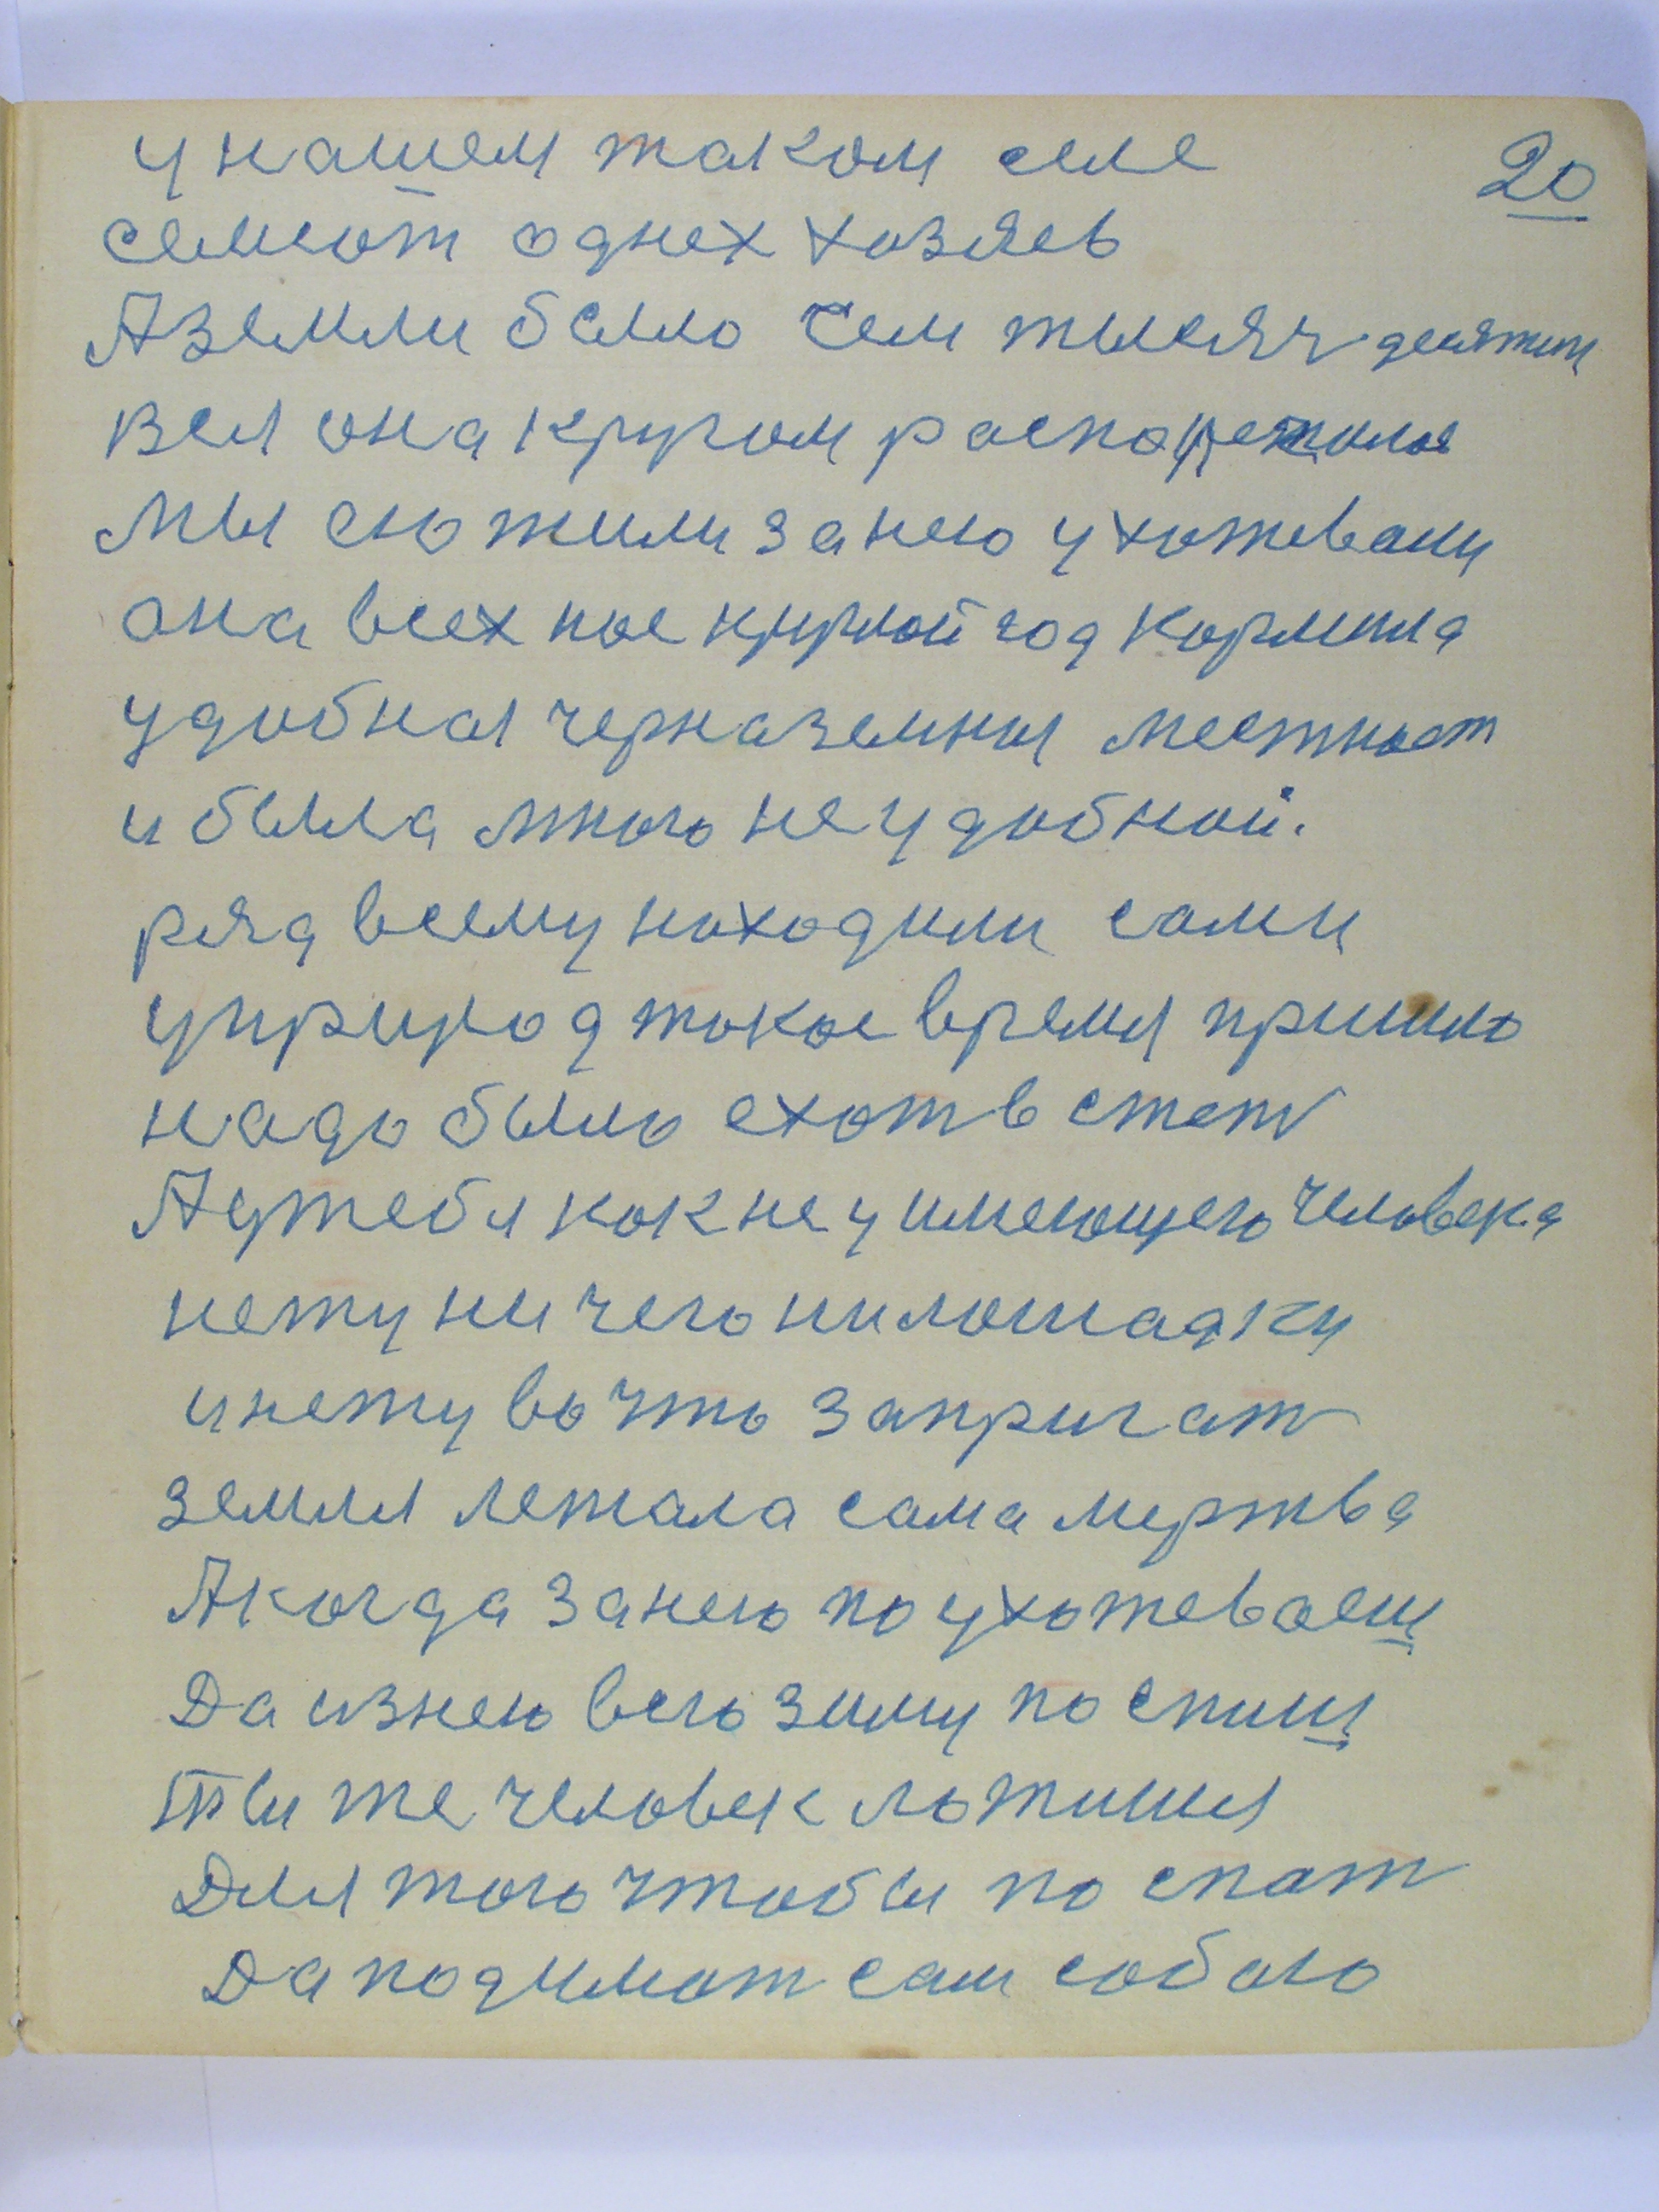 у нашем таком селе
20
семсот однех хозяев
А земли было сем тысяч десятин
вся она кругом располежилась
мы ею жили за нею ухожевали
она всех нас круглой год кормила
удобная черназемная местност
и была много неудобной.
ряд всему находили сами
у природ такое время пришло
надо было ехат в степ
А у тебя как не у имеющего человека
нету ни чего ни лошадки
и нету во что запригат
земля лежала сама мертва
А когда за нею по ухожеваеш
Да из нею всю зиму по спиш
Ты же человек ложишся
Для того чтобы по спат
Да подумат сам собою